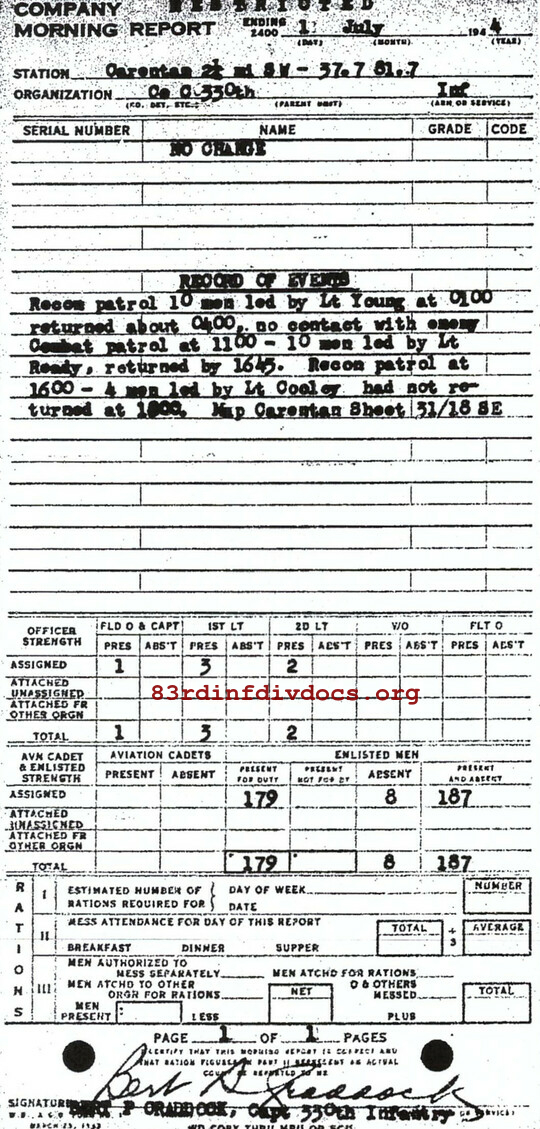 COMPANY RESTRICTED
MORNING REPORT ENDING 2400 1 July 1944
(DAY) (MONTH) (YEAR)
STATION Carentan 2½ mi SW - 37.7 81.7
ORGANIZATION Co C 330th Inf
(CO. DET, ETC.) (PARENT UNIT) (ARM OR SERVICE)
SERIAL NUMBER NAME GRADE CODE
NO CHANGE
RECORD OF EVENTS
Recon patrol 10 men led by Lt Young at 0100
returned about 0400, no contact with enemy
Combat patrol at 1100 - 10 men led by Lt
Ready, returned by 1645. Recon patrol at
1600 - 4 men led by Lt Cooley had not re-
turned at 1800. Map Carentan Sheet 31/18 SE
OFFICER STRENGTH FLD O & CAPT 1ST LT 2D LT W/O FLT O
PRES ABS'T PRES ABS'T PRES ABS'T PRES ABS'T PRES ABS'T
ASSIGNED 1 3 2
ATTACHED UNASSIGNED
83rdinfdivdocs.org
ATTACHED FR OTHER ORGN
TOTAL 1 3 2
AVN CADET & ENLISTED STRENGTH AVIATION CADETS ENLISTED MEN
PRESENT ABSENT PRESENT FOR DUTY PRESENT NOT FOR DY ABSENT PRESENT AND ABSENT
ASSIGNED 179 8 187
ATTACHED UNASSIGNED
ATTACHED FR OTHER ORGN
TOTAL 179 8 187
RATIONS
I ESTIMATED NUMBER OF RATIONS REQUIRED FOR { DAY OF WEEK DATE NUMBER
II MESS ATTENDANCE FOR DAY OF THIS REPORT TOTAL ÷ 3 AVERAGE
BREAKFAST DINNER SUPPER
III MEN AUTHORIZED TO MESS SEPARATELY MEN ATCHD FOR RATIONS
MEN ATCHD TO OTHER ORGN FOR RATIONS NET O & OTHERS MESSED TOTAL
MEN PRESENT LESS PLUS
PAGE 1 OF 1 PAGES
I CERTIFY THAT THIS MORNING REPORT IS CORRECT AND
THAT RATION FIGURES IN PART II REPRESENT AN ACTUAL
SIGNATURE
BERT P CRADDOCK, Capt 330th Infantry
MARCH 25, 1943